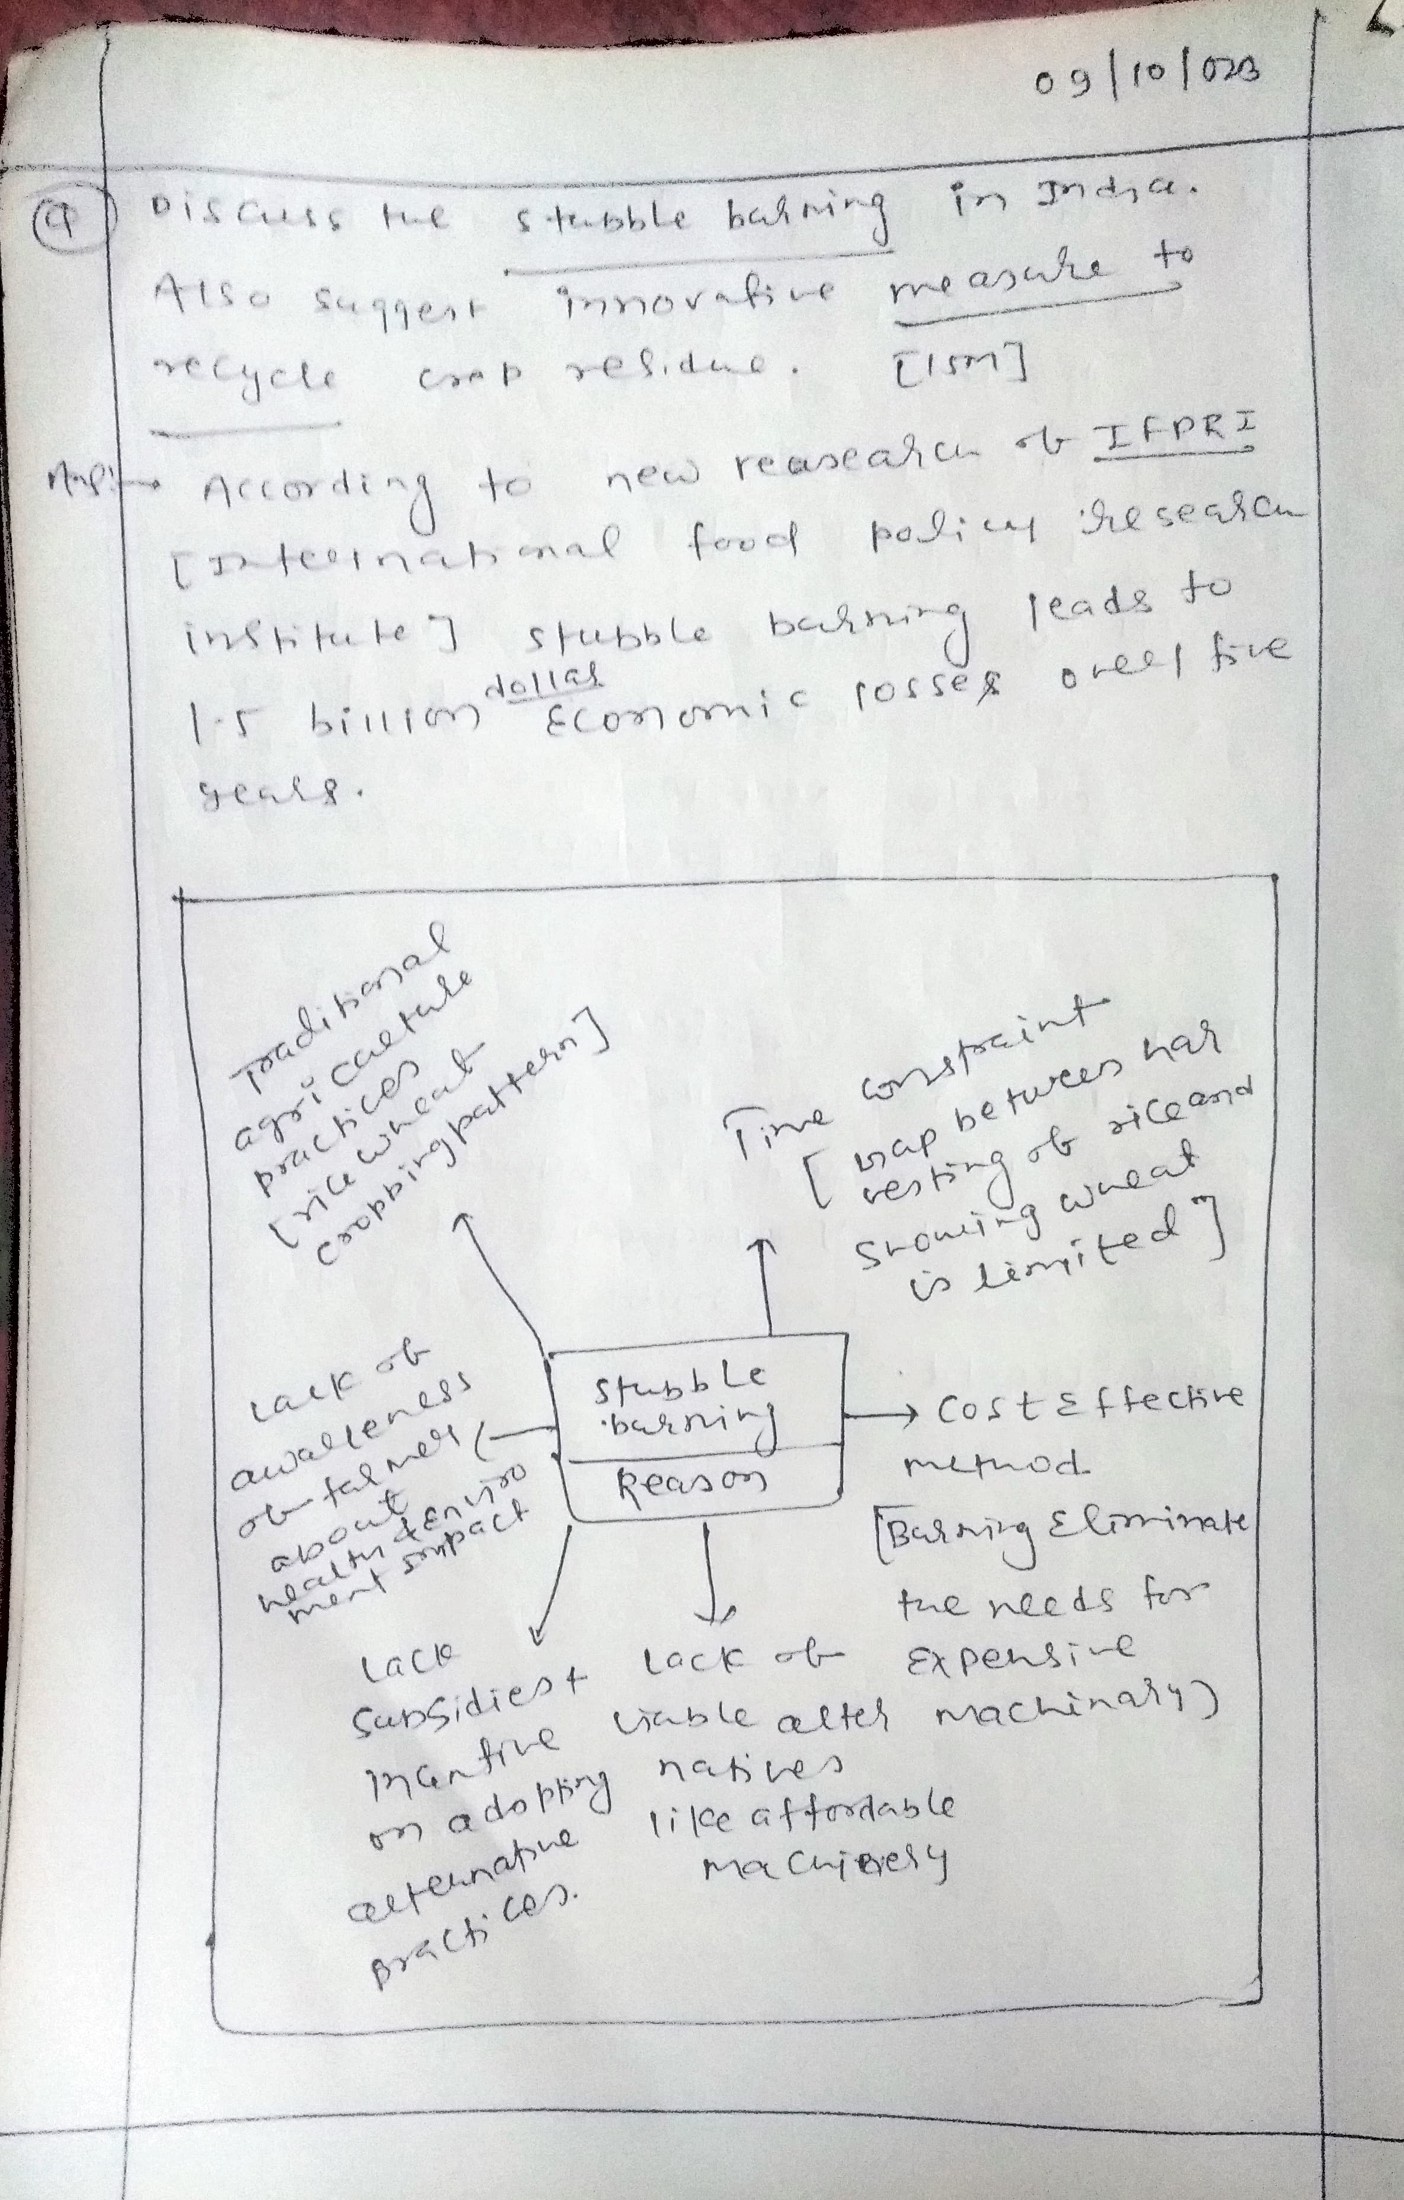 09/10/023
Q) Discuss the stubble burning in India.
Also suggest innovative measure to
recycle crop residue. [15M]
Ans:→ According to new reasearch of IFPRI
[International food policy research
institute] stubble burning leads to
1.5 billion dollar Economic losses over five
years.
Traditional
agriculture
practices
[rice wheat
cropping pattern]
Time constraint
[ gap between har
vesting of rice and
showing wheat
is limited]
Stubble
burning
Reason
Lack of
awareness
of farmer
about
health & enviro
ment impact
→ Cost Effective
method
[Burning Eliminate
the needs for
Expensive
machinary)
Lack
subsidies +
incentive
on adopting
alternative
practices.
Lack of
viable alter
natives
like affordable
machinery